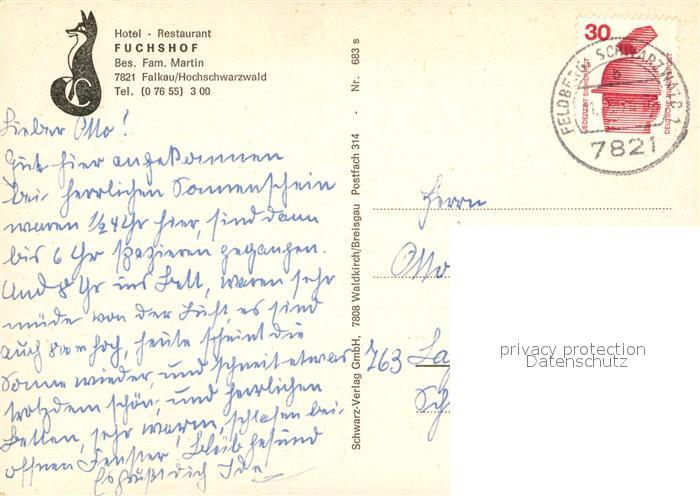 Hotel - Restaurant
FUCHSHOF
Bes. Fam. Martin
7821 Falkau/Hochschwarzwald
Tel. (0 76 55) 3 00
Lieber Otto!
Gut hier angekommen
bei herrlichen Sonnenschein
waren 1/2 4 Uhr hier, sind dann
bis 6 Uhr spazieren gegangen.
Und 8 Uhr ins Bett, waren sehr
müde von der Luft, es sind
auch 800 m hoch, heute scheint die
Sonne wieder, und schneit etwas
trotzdem schön, und herrlichen
Betten, sehr warm, schlafen bei
offnen Fenster. Bleib gesund
Es grüßt dich Ida
Schwarz-Verlag GmbH, 7808 Waldkirch/Breisgau Postfach 314 - Nr. 683 s
30
JEDERZEIT SICHERHEIT
DEUTSCHE BUNDESPOST
FELDBERG, SCHWARZWALD 1
b
7821
Herrn
Otto
763 La
Sch
privacy protection
Datenschutz